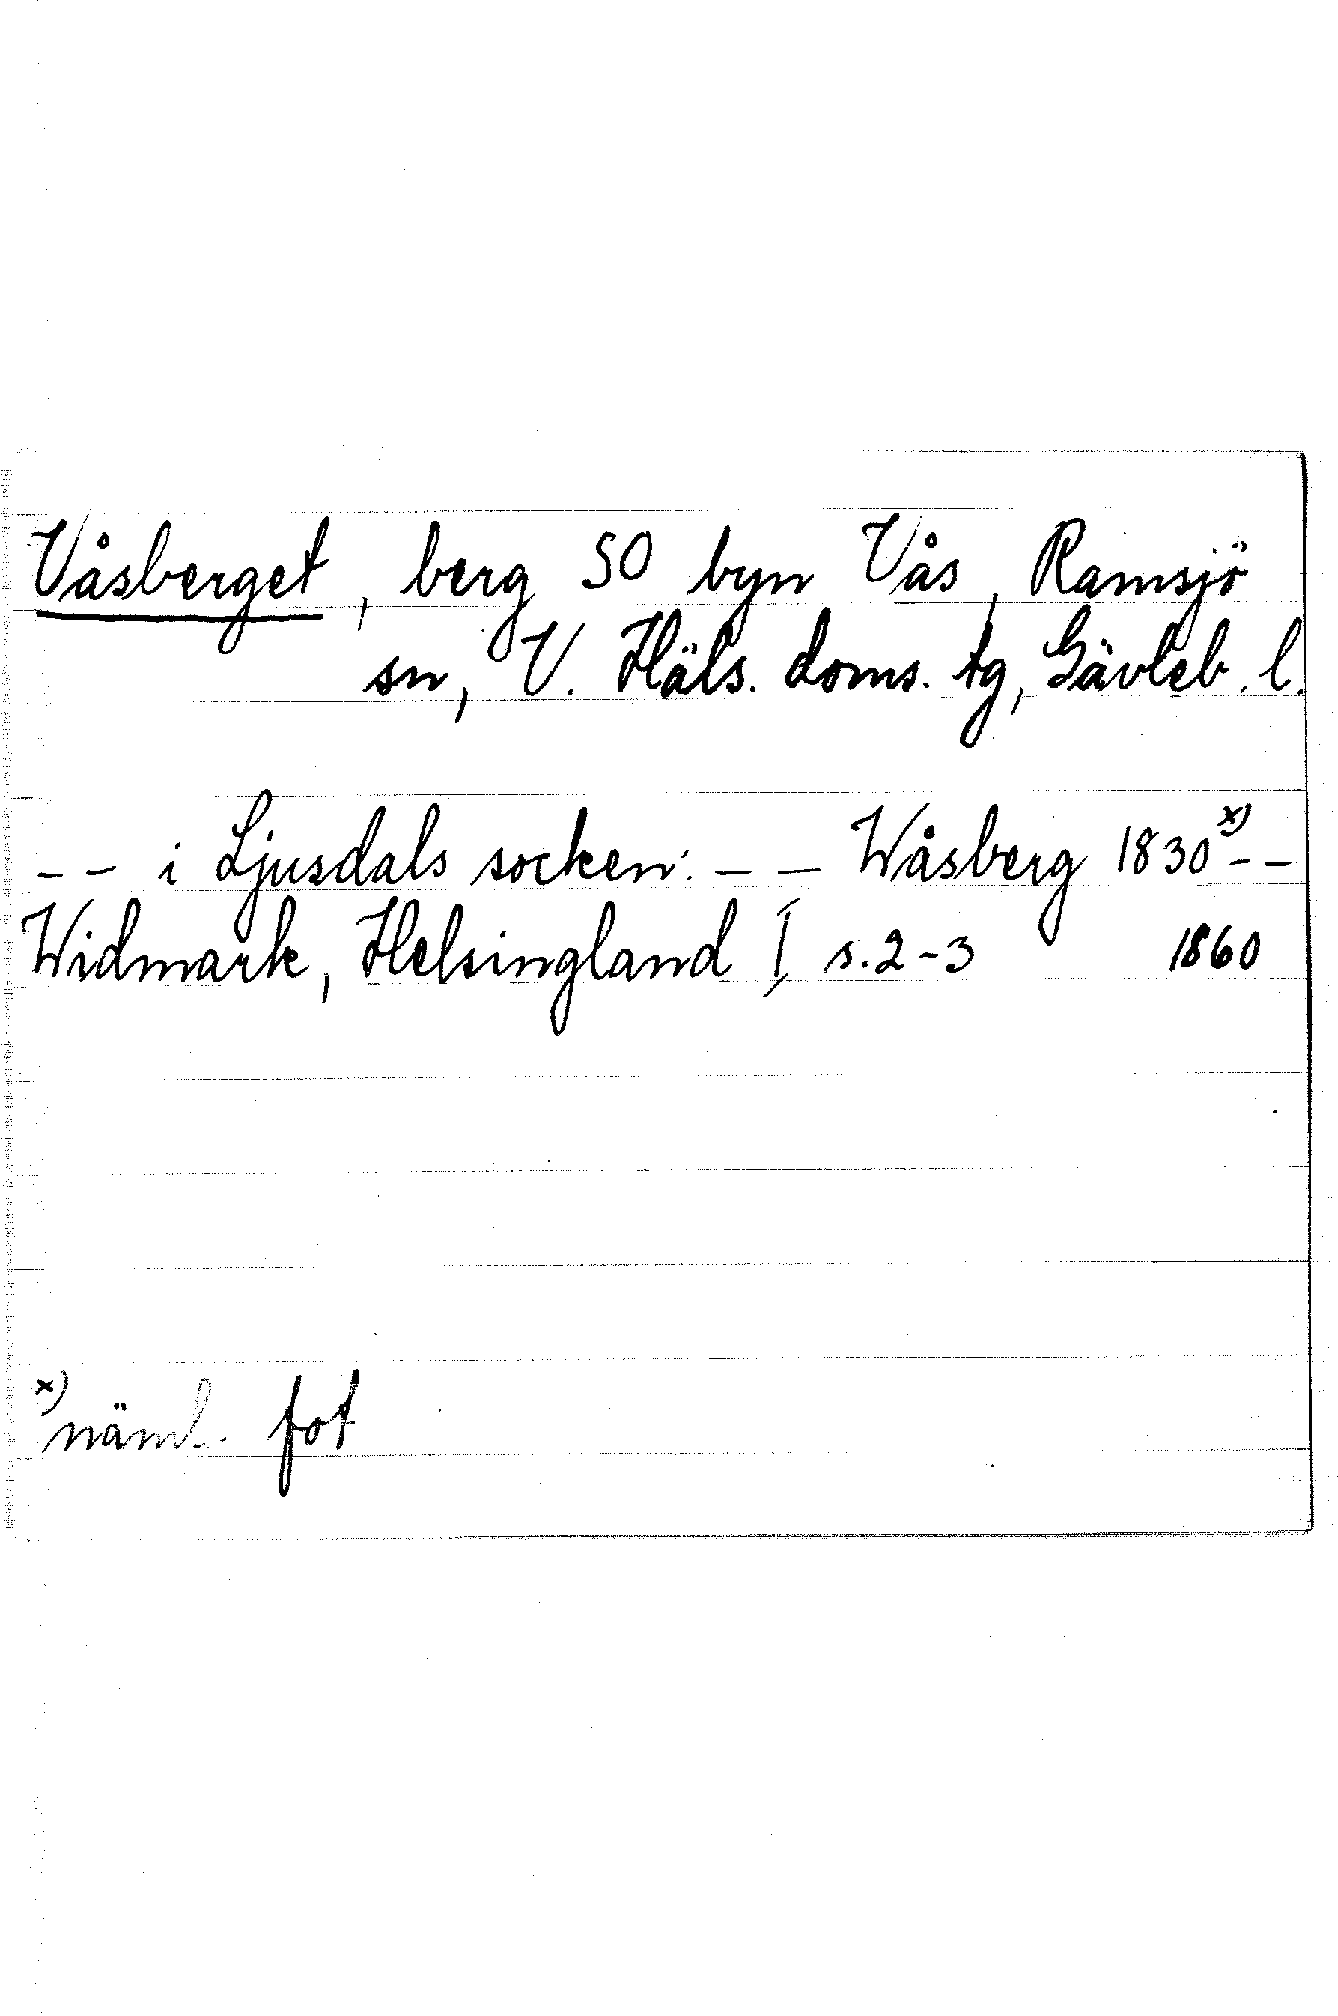 Våsberget, berg SO byn Vås, Ramsjö
sn, V. Häls. doms. tg, Gävleb. l.
-- i Ljusdals socken: -- Wåsberg 1830 x) --
Widmark, Helsingland I, s. 2-3 1860
x) näml. fot